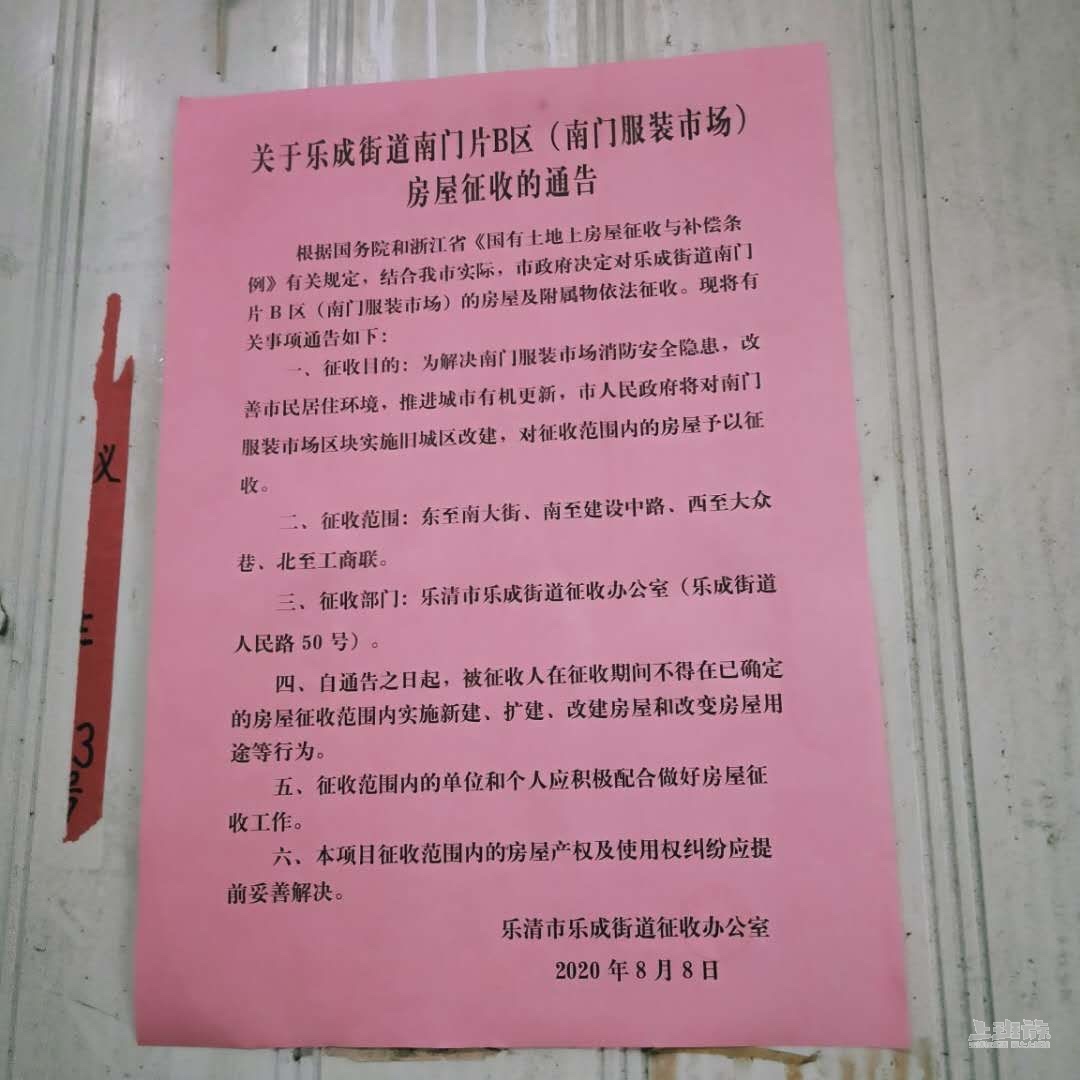 关于乐成街道南门片B区（南门服装市场）
房屋征收的通告
根据国务院和浙江省《国有土地上房屋征收与补偿条
例》有关规定，结合我市实际，市政府决定对乐成街道南门
片 B 区（南门服装市场）的房屋及附属物依法征收。现将有
关事项通告如下：
一、征收目的：为解决南门服装市场消防安全隐患，改
善市民居住环境，推进城市有机更新，市人民政府将对南门
服装市场区块实施旧城区改建，对征收范围内的房屋予以征
收。
二、征收范围：东至南大街、南至建设中路、西至大众
巷、北至工商联。
三、征收部门：乐清市乐成街道征收办公室（乐成街道
人民路 50 号）。
四、自通告之日起，被征收人在征收期间不得在已确定
的房屋征收范围内实施新建、扩建、改建房屋和改变房屋用
途等行为。
五、征收范围内的单位和个人应积极配合做好房屋征
收工作。
六、本项目征收范围内的房屋产权及使用权纠纷应提
前妥善解决。
乐清市乐成街道征收办公室
2020 年 8 月 8 日
3
上班族